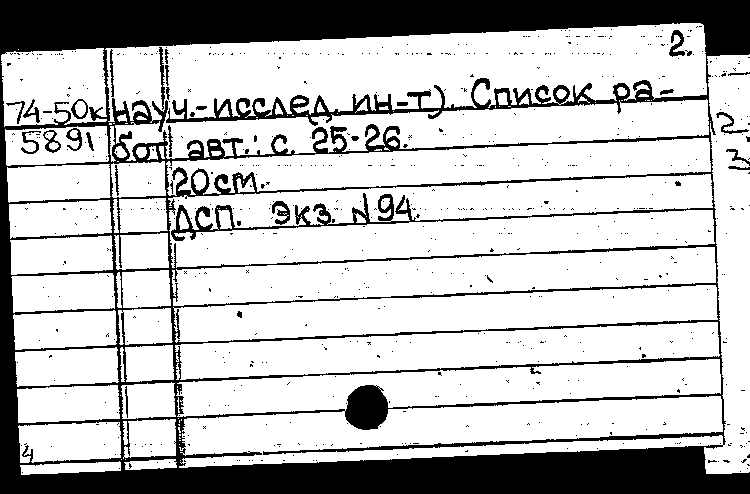 2.
74-50к науч.-исслед. ин-т). Список ра-
5891 бот авт.: с. 25-26.
20 см.
ДСП. Экз. N 94.
4
2
3